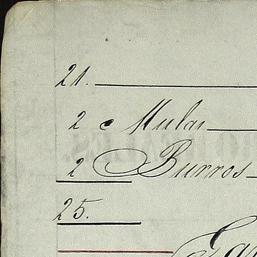 21.
2 Mulas
2 Burros
25.